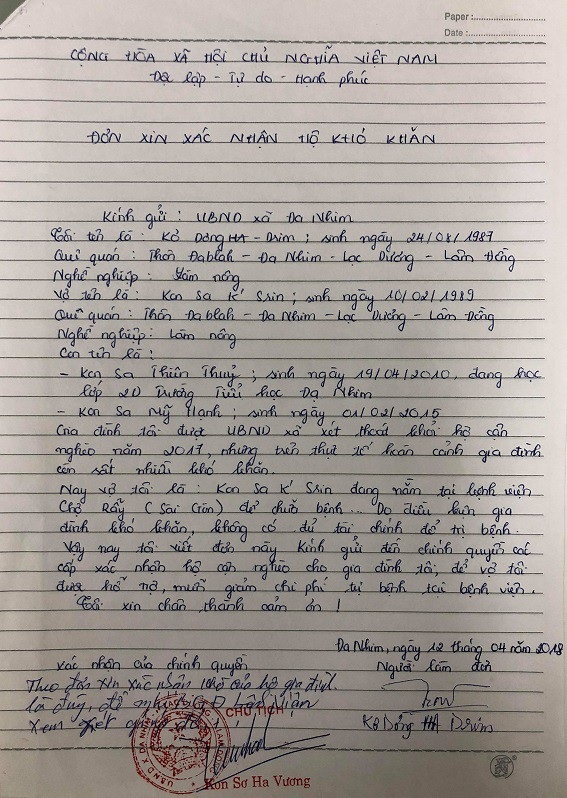 Paper :
Date :
CỘNG HÒA XÃ HỘI CHỦ NGHĨA VIỆT NAM
Độc lập - Tự do - Hạnh phúc
ĐƠN XIN XÁC NHẬN HỘ KHÓ KHĂN
Kính gửi : UBND xã Đa Nhim
Tôi tên là : Kơ Dơng HA - Drim ; sinh ngày 24/08/1987
Quê quán : Thôn Đablah - Đa Nhim - Lạc Dương - Lâm Đồng
Nghề nghiệp : Làm nông
Vợ tên là : Kon Sa K' Srin ; sinh ngày 10/02/1989
Quê quán : Thôn Đablah - Đa Nhim - Lạc Dương - Lâm Đồng
Nghề nghiệp : Làm nông
Con tên là :
- Kon Sa Thiên Thuỷ ; sinh ngày 19/04/2010, đang học
lớp 2D Trường Tiểu học Đạ Nhim
- Kon Sa Mỹ Hạnh ; sinh ngày 01/02/2015
Gia đình tôi được UBND xã xét thoát khỏi hộ cận
nghèo năm 2017, nhưng trên thực tế hoàn cảnh gia đình
còn rất nhiều khó khăn.
Nay vợ tôi là : Kon Sa K' Srin đang nằm tại bệnh viện
Chợ Rẫy (Sài Gòn) để chữa bệnh... Do điều kiện gia
đình khó khăn, không có đủ tài chính để trị bệnh.
Vậy nay tôi viết đơn này Kính gửi đến chính quyền các
cấp xác nhận hộ cận nghèo cho gia đình tôi, để vợ tôi
được hỗ trợ, miễn giảm chi phí trị bệnh tại bệnh viện.
Tôi xin chân thành cảm ơn !
Đa Nhim, ngày 12 tháng 04 năm 2018
Xác nhận của chính quyền
Người làm đơn
Theo đơn xin xác nhận của hộ gia đình
là đúng, đề nghị
Xem xét
CHỦ TỊCH
Kơ Dơng HA Drim
Kon Sơ Ha Vương